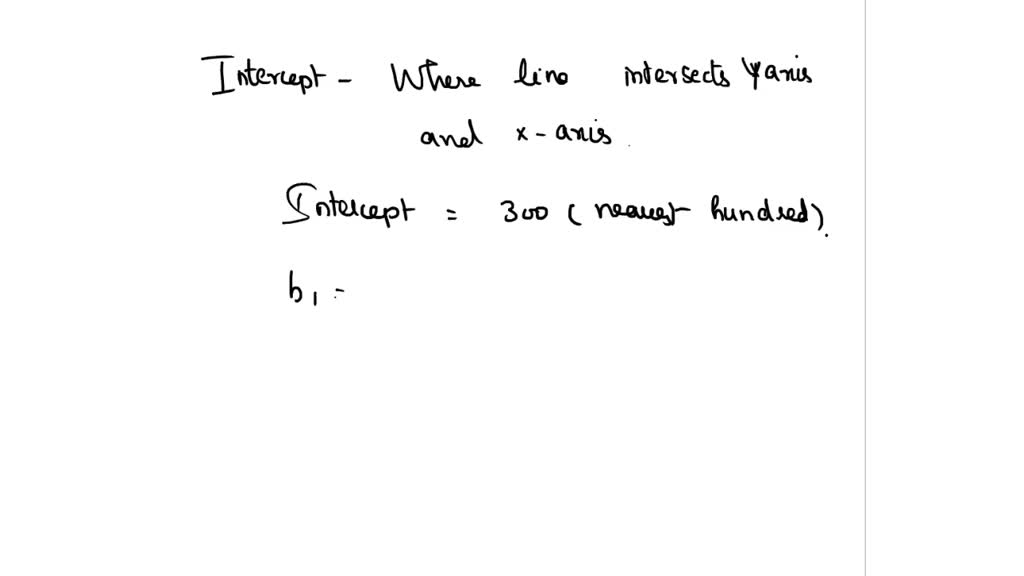 Intercept - Where line intersects Y axis
and x-axis
Intercept = 300 (nearest hundred).
b1 =